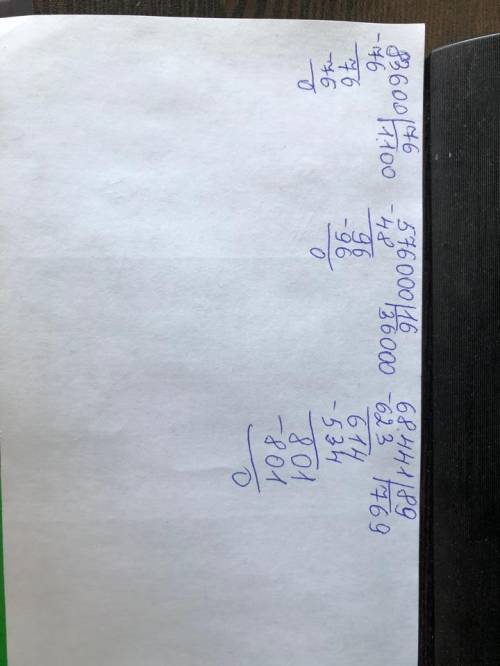 83600|76
-76 1100
76
-76
0
576000|16
-48 36000
96
-96
0
68441|89
-623 769
614
-534
801
-801
0